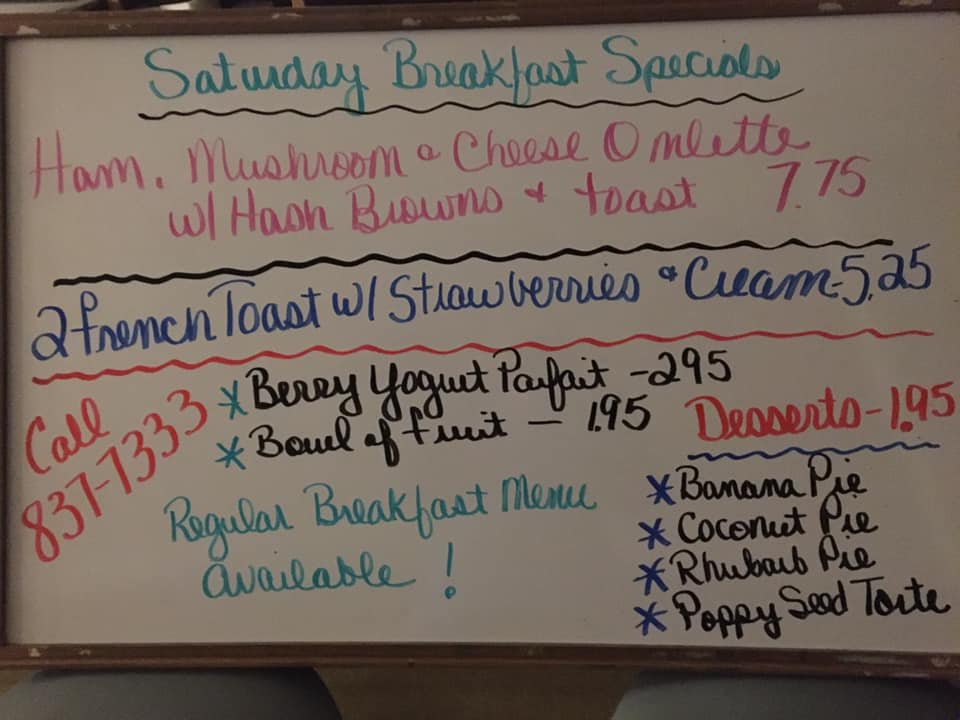 Saturday Breakfast Specials
Ham, Mushroom & Cheese Omlette
w/ Hash Browns & toast 7.75
2 french Toast w/ Strawberries & Cream - 5.25
Call
837-7333
* Berry Yogurt Parfait - 295
* Bowl of fruit - 1.95
Regular Breakfast Menu
available !
Desserts - 1.95
* Banana Pie
* Coconut Pie
* Rhubarb Pie
* Poppy Seed Torte